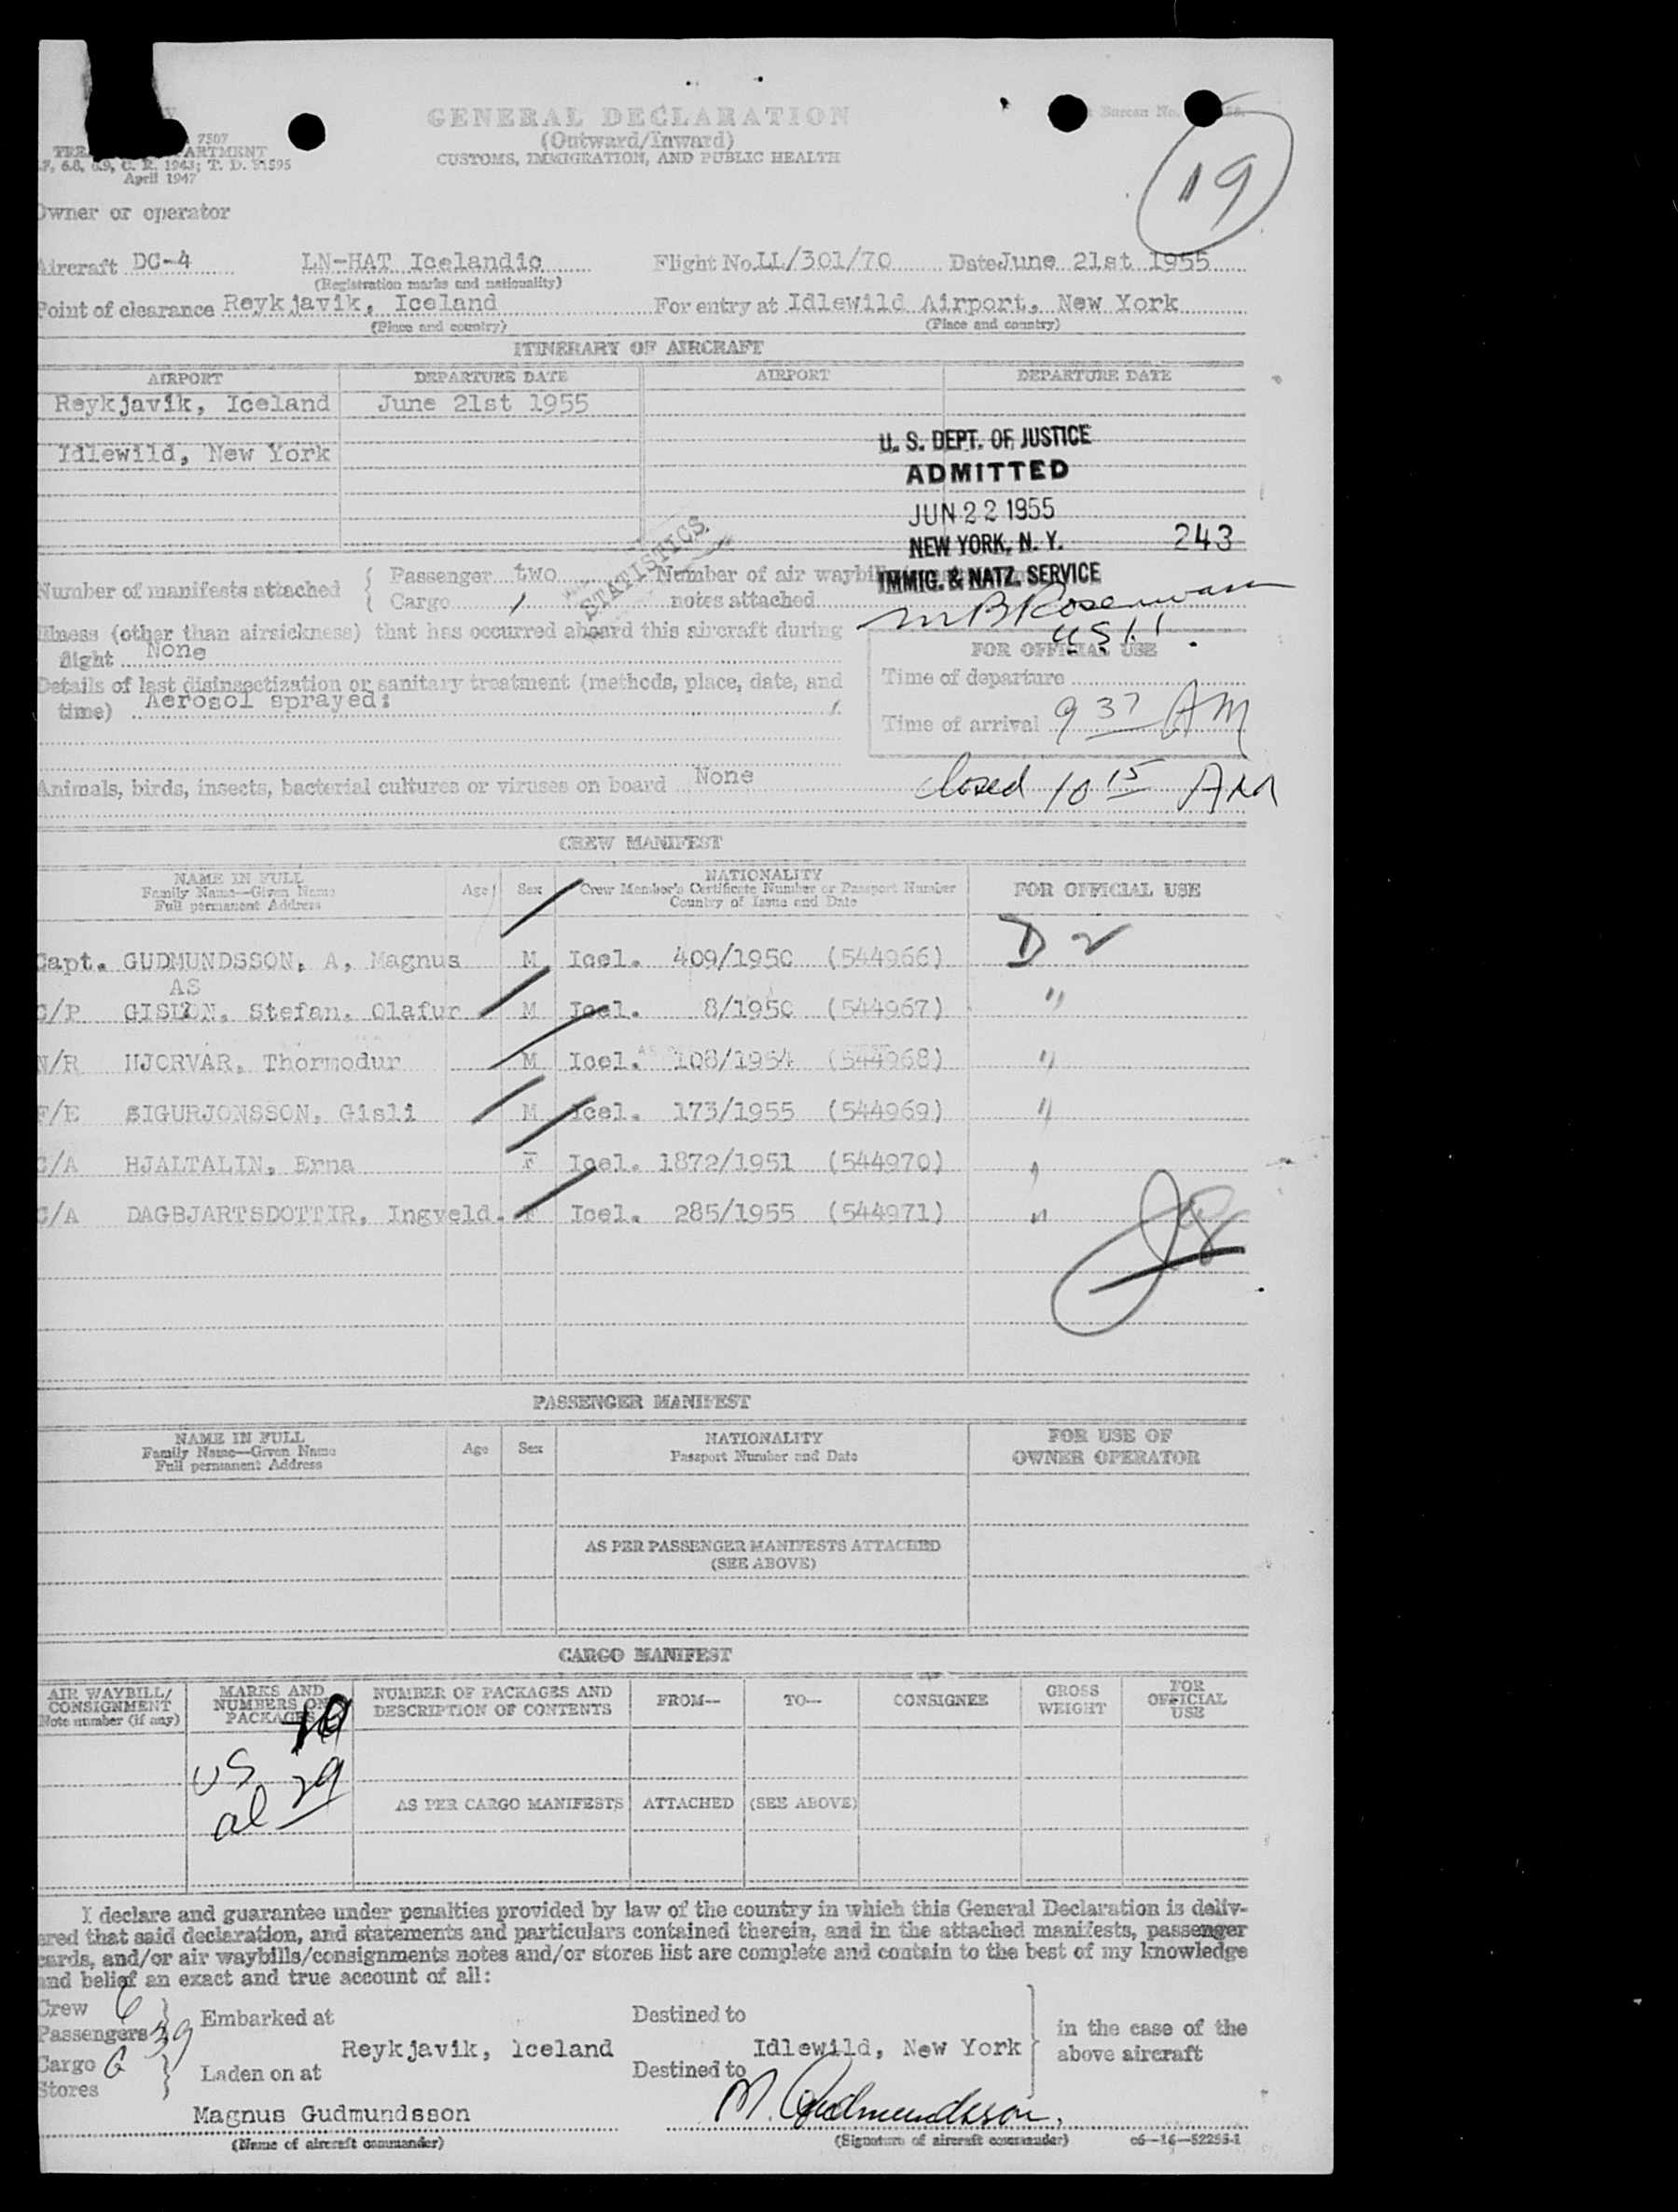 GENERAL DECLARATION
(Outward/Inward)
CUSTOMS, IMMIGRATION, AND PUBLIC HEALTH
7507
April 1947
19
Owner or operator
Aircraft DC-4 LN-HAT Icelandic Flight No. LL/301/70 Date June 21st 1955
(Registration marks and nationality)
Point of clearance Reykjavik, Iceland For entry at Idlewild Airport, New York
(Place and country) (Place and country)
ITINERARY OF AIRCRAFT
AIRPORT DEPARTURE DATE AIRPORT DEPARTURE DATE
Reykjavik, Iceland June 21st 1955
Idlewild, New York
U. S. DEPT. OF JUSTICE
ADMITTED
JUN 22 1955
NEW YORK, N. Y. 243
IMMIG. & NATZ. SERVICE
STATISTICS
Number of manifests attached { Passenger two Number of air waybills
Cargo 1 notes attached
Illness (other than airsickness) that has occurred aboard this aircraft during
flight None
FOR OFFICIAL USE
Details of last disinsectization or sanitary treatment (methods, place, date, and
time) Aerosol sprayed:
Time of departure
Time of arrival 9 37 AM
Animals, birds, insects, bacterial cultures or viruses on board None
Closed 10 15 AM
CREW MANIFEST
NAME IN FULL
Family Name—Given Name
Full permanent Address
Age Sex
NATIONALITY
Crew Member's Certificate Number or Passport Number
Country of Issue and Date
FOR OFFICIAL USE
Capt. GUDMUNDSSON, A, Magnus M Icel. 409/1950 (544966) D 2
AS
C/P GISLON, Stefan, Olafur M Icel. 8/1950 (544967) "
N/R HJORVAR, Thormodur M Icel. 108/1954 (544968) "
F/E SIGURJONSSON, Gisli M Icel. 173/1955 (544969) "
C/A HJALTALIN, Erna F Icel. 1872/1951 (544970) "
C/A DAGBJARTSDOTTIR, Ingveld. F Icel. 285/1955 (544971) "
PASSENGER MANIFEST
NAME IN FULL
Family Name—Given Name
Full permanent Address
Age Sex
NATIONALITY
Passport Number and Date
FOR USE OF
OWNER OPERATOR
AS PER PASSENGER MANIFESTS ATTACHED
(SEE ABOVE)
CARGO MANIFEST
AIR WAYBILL/
CONSIGNMENT
Note number (if any)
MARKS AND
NUMBERS ON
PACKAGES
NUMBER OF PACKAGES AND
DESCRIPTION OF CONTENTS
FROM— TO— CONSIGNEE
GROSS
WEIGHT
FOR
OFFICIAL
USE
10
US
al 29
AS PER CARGO MANIFESTS ATTACHED (SEE ABOVE)
I declare and guarantee under penalties provided by law of the country in which this General Declaration is deliv-
ered that said declaration, and statements and particulars contained therein, and in the attached manifests, passenger
cards, and/or air waybills/consignments notes and/or stores list are complete and contain to the best of my knowledge
and belief an exact and true account of all:
Crew 6
Passengers 39
Cargo 6
Stores
Embarked at
Reykjavik, Iceland
Laden on at
Destined to
Idlewild, New York
Destined to
in the case of the
above aircraft
Magnus Gudmundsson M. Gudmundsson,
(Name of aircraft commander) (Signature of aircraft commander) c6—16—52255-1